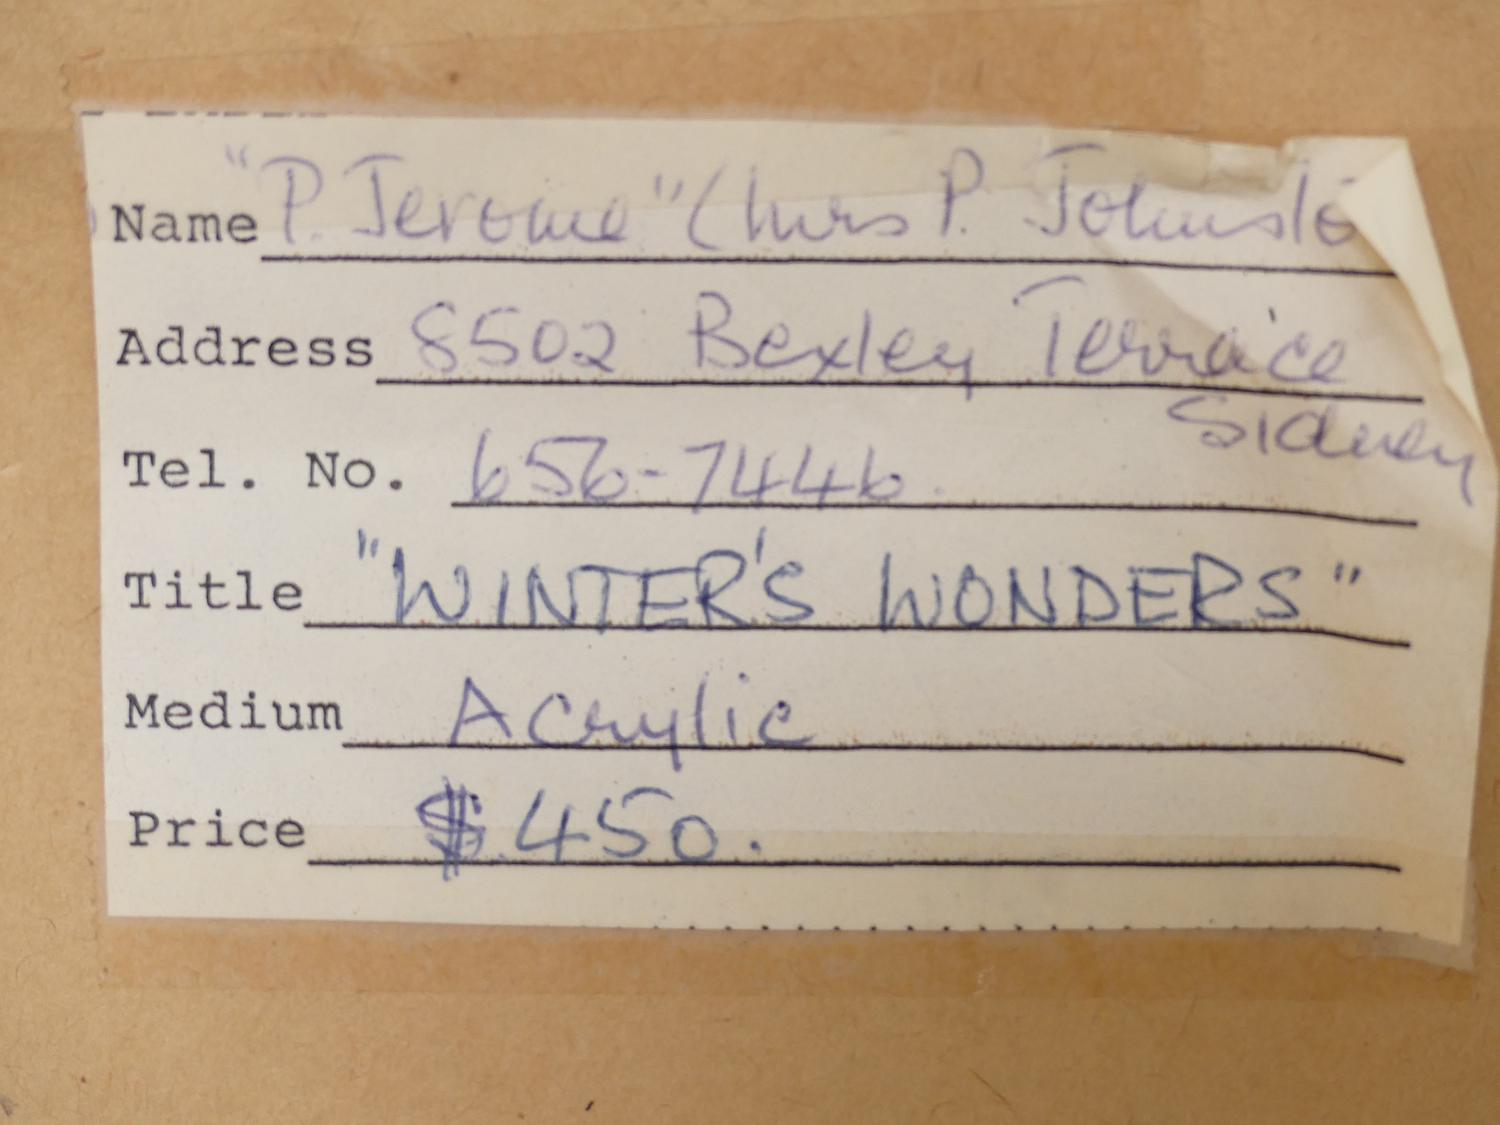 Name "P. Jerome" (Mrs P. Johnsto
Address 8502 Bexley Terrace
Sidney
Tel. No. 656-7446.
Title "WINTER'S WONDERS"
Medium Acrylic
Price $450.